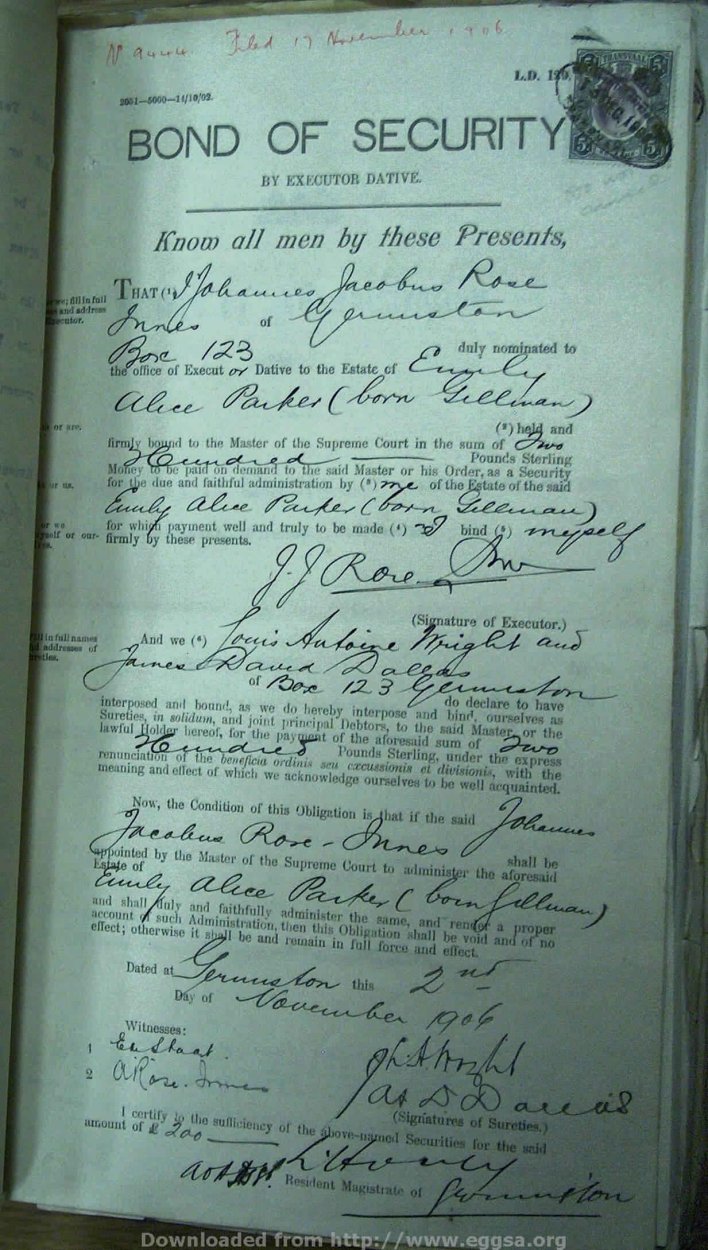 Filed 17 November 1906
L.D. 139.
TRANSVAAL
2051—5000—14/10/02.
BOND OF SECURITY
BY EXECUTOR DATIVE.
Know all men by these Presents,
or we; fill in full
and address
Executor.
THAT (1) I Johannes Jacobus Rose
Innes of Germiston
Box 123 duly nominated to
the office of Executor Dative to the Estate of Emily
Alice Parker (born Gillman)
or are.
(2) held and
firmly bound to the Master of the Supreme Court in the sum of Two
Hundred Pounds Sterling
Money to be paid on demand to the said Master or his Order, as a Security
or us.
for the due and faithful administration by (3) me of the Estate of the said
Emily Alice Parker (born Gillman)
or we
myself or our-
for which payment well and truly to be made (4) I bind (5) myself
firmly by these presents.
J. J. Rose Innes
(Signature of Executor.)
Fill in full names
and addresses of
sureties.
And we (6) Louis Antoine Wright and
James David Dallas
of Box 123 Germiston
do declare to have
interposed and bound, as we do hereby interpose and bind, ourselves as
Sureties, in solidum, and joint principal Debtors, to the said Master, or the
lawful Holder hereof, for the payment of the aforesaid sum of Two
Hundred Pounds Sterling, under the express
renunciation of the beneficia ordinis seu excussionis et divisionis, with the
meaning and effect of which we acknowledge ourselves to be well acquainted.
Now, the Condition of this Obligation is that if the said Johannes
Jacobus Rose-Innes shall be
appointed by the Master of the Supreme Court to administer the aforesaid
Estate of
Emily Alice Parker (born Gillman)
and shall duly and faithfully administer the same, and render a proper
account of such Administration, then this Obligation shall be void and of no
effect; otherwise it shall be and remain in full force and effect.
Dated at Germiston this 2nd
Day of November 1906
Witnesses:
1
2 A Rose-Innes
L. A Wright
Jas D Dallas
(Signatures of Sureties.)
I certify to the sufficiency of the above-named Securities for the said
amount of £ 200
Resident Magistrate of Germiston
Downloaded from http://www.eggsa.org